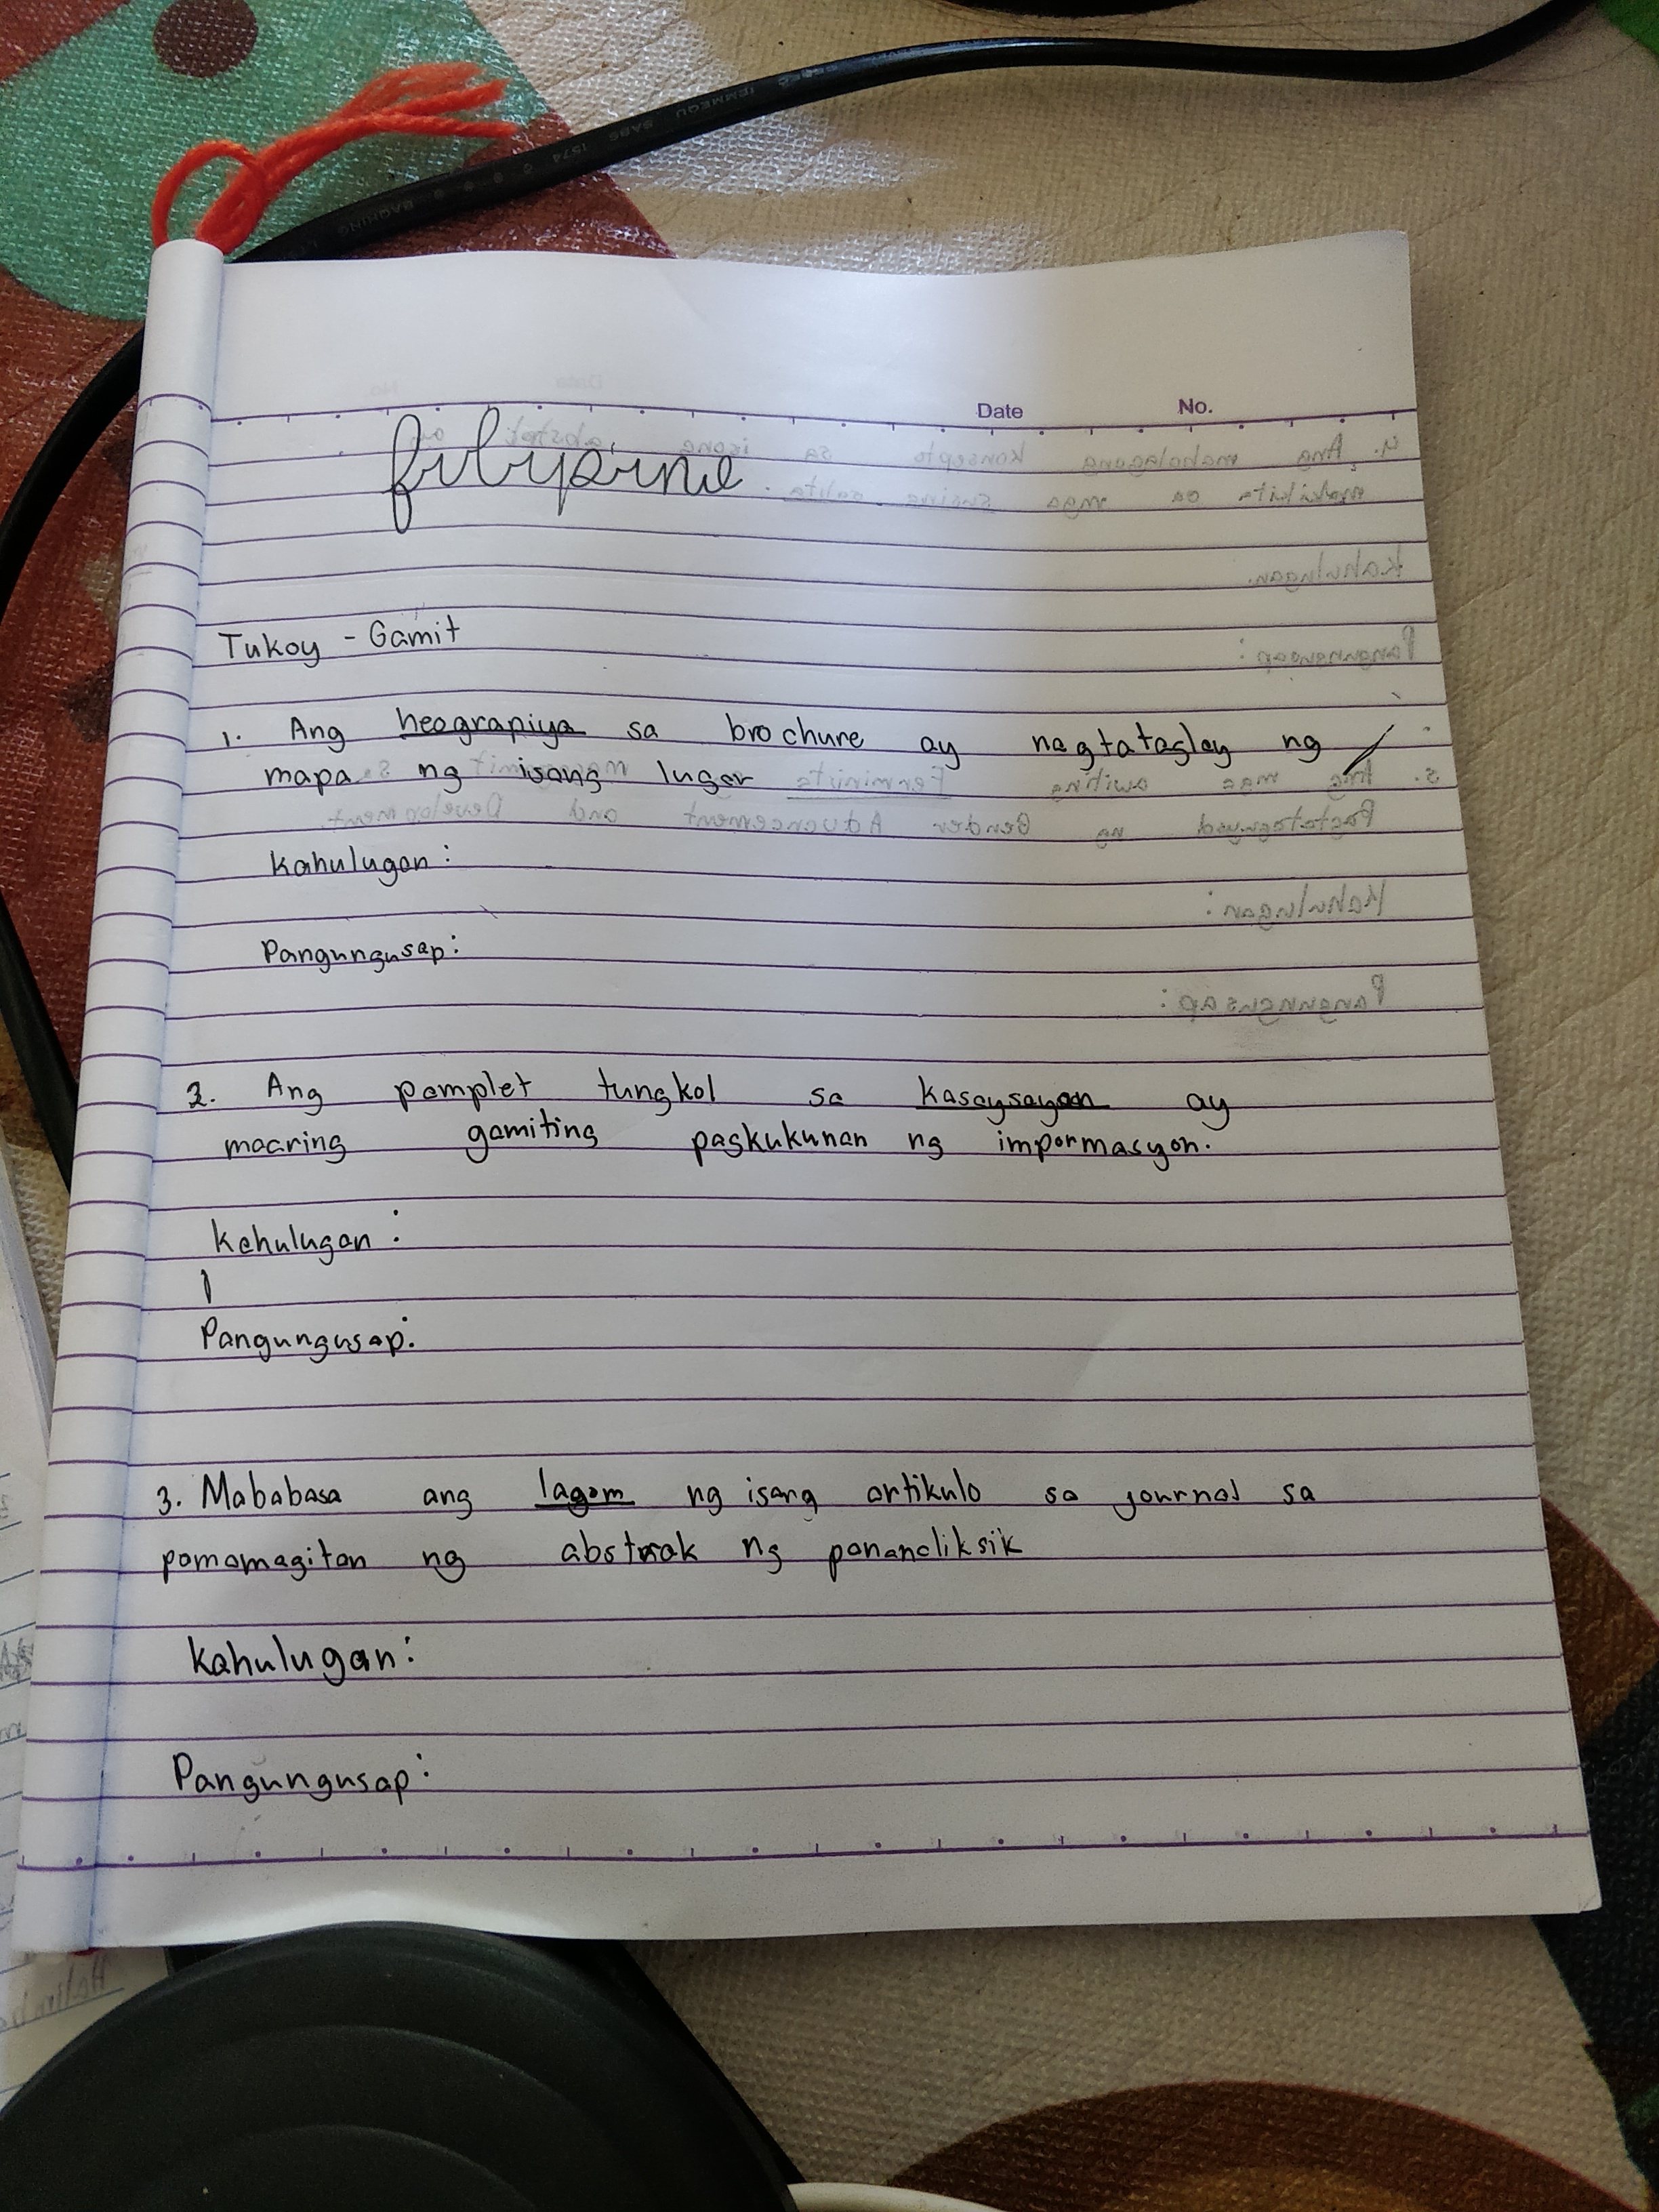 Date No.
filipino
Tukoy - Gamit
1. Ang heograpiya sa brochure ay nagtataglay ng
mapa ng isang lugar
Kahulugan :
Pangungusap:
2. Ang pamplet tungkol sa kasaysayan ay
maaring gamiting pagkukunan ng impormasyon.
Kahulugan :
Pangungusap:
3. Mababasa ang lagom ng isang artikulo sa journal sa
pamamagitan ng abstrak ng pananaliksik
Kahulugan:
Pangungusap: